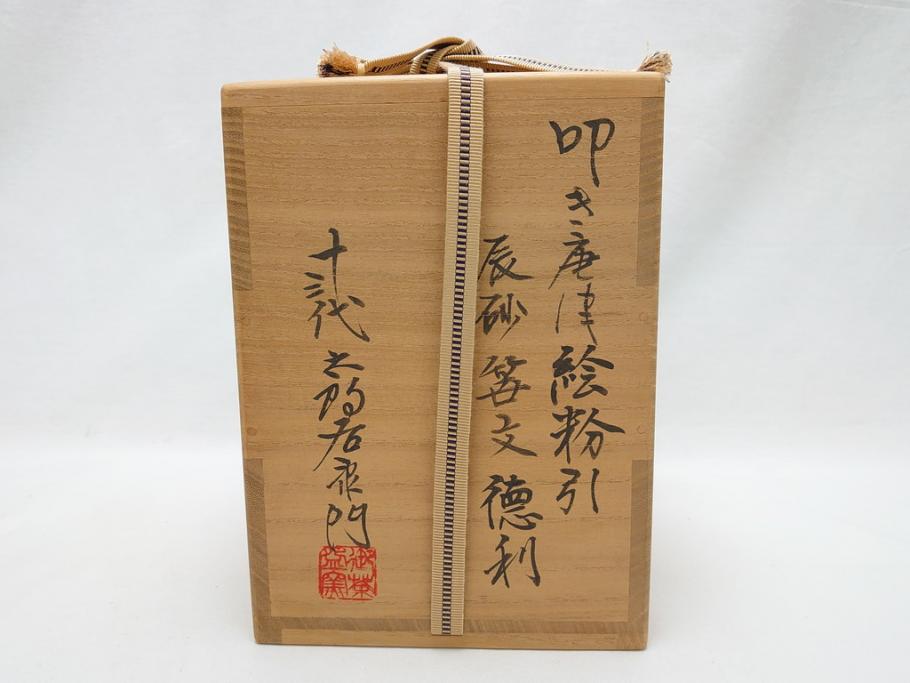 叩き唐津絵粉引
辰砂筥文徳利
十三代太郎右衛門
御茶盌窯